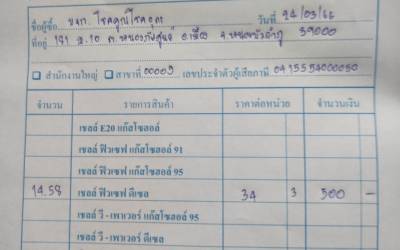 ชื่อผู้ซื้อ หจก. โชคคูณโชคอุดร วันที่ 24/03/66
ที่อยู่ 191 ม.10 ต.หนองภัยศูนย์ อ.เมือง จ.หนองบัวลำภู 39000
สำนักงานใหญ่ สาขาที่ 00009 เลขประจำตัวผู้เสียภาษี
จำนวน รายการสินค้า ราคาต่อหน่วย จำนวนเงิน
เชลล์ E20 แก๊สโซฮอล์
เชลล์ ฟิวเซฟ แก๊สโซฮอล์ 91
เชลล์ ฟิวเซฟ แก๊สโซฮอล์ 95
14.58 เชลล์ ฟิวเซฟ ดีเซล 34 3 500 –
เชลล์ วี - เพาเวอร์ แก๊สโซฮอล์ 95
เชลล์ วี - เพาเวอร์ ดีเซล